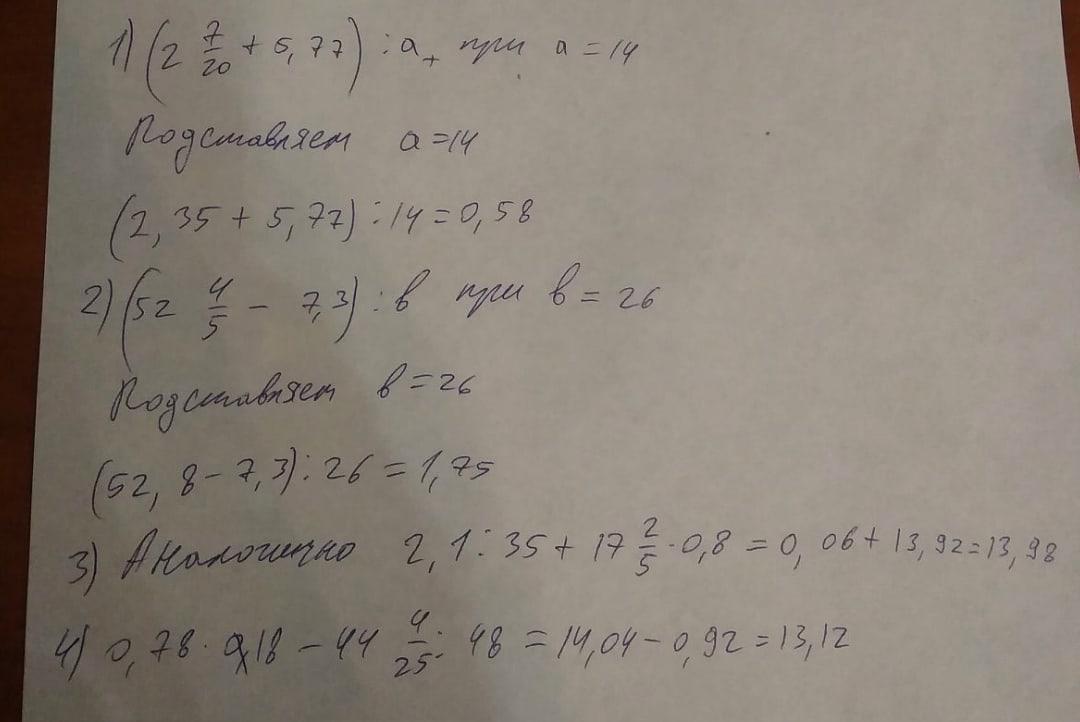 1) (2 7/20 + 5,77) : а, при а = 14
Подставляем а = 14
(2,35 + 5,77) : 14 = 0,58
2) (52 4/5 - 7,3) : в при в = 26
Подставляем в = 26
(52,8 - 7,3) : 26 = 1,75
3) Аналогично 2,1 : 35 + 17 2/5 · 0,8 = 0,06 + 13,92 = 13,98
4) 0,78 · 18 - 44 4/25 : 48 = 14,04 - 0,92 = 13,12